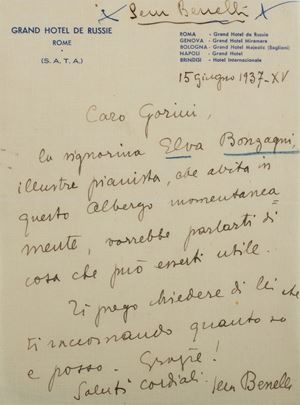 x Sem Benelli x
GRAND HOTEL DE RUSSIE
ROME
(S. A. T. A.)
ROMA - Grand Hotel de Russie
GENOVA - Grand Hotel Miramare
BOLOGNA - Grand Hotel Majestic (Baglioni)
NAPOLI - Grand Hotel
BRINDISI - Hotel Internazionale
15 giugno 1937-XV
Caro Gorini,
la signorina Elva Bonzagni,
illustre pianista, che abita in
questo albergo momentanea=
mente, vorrebbe parlarti di
cosa che può esserti utile.
Ti prego chiedere di lei che
ti raccomando quanto so
e posso. Grazie!
Saluti cordiali
Sem Benelli